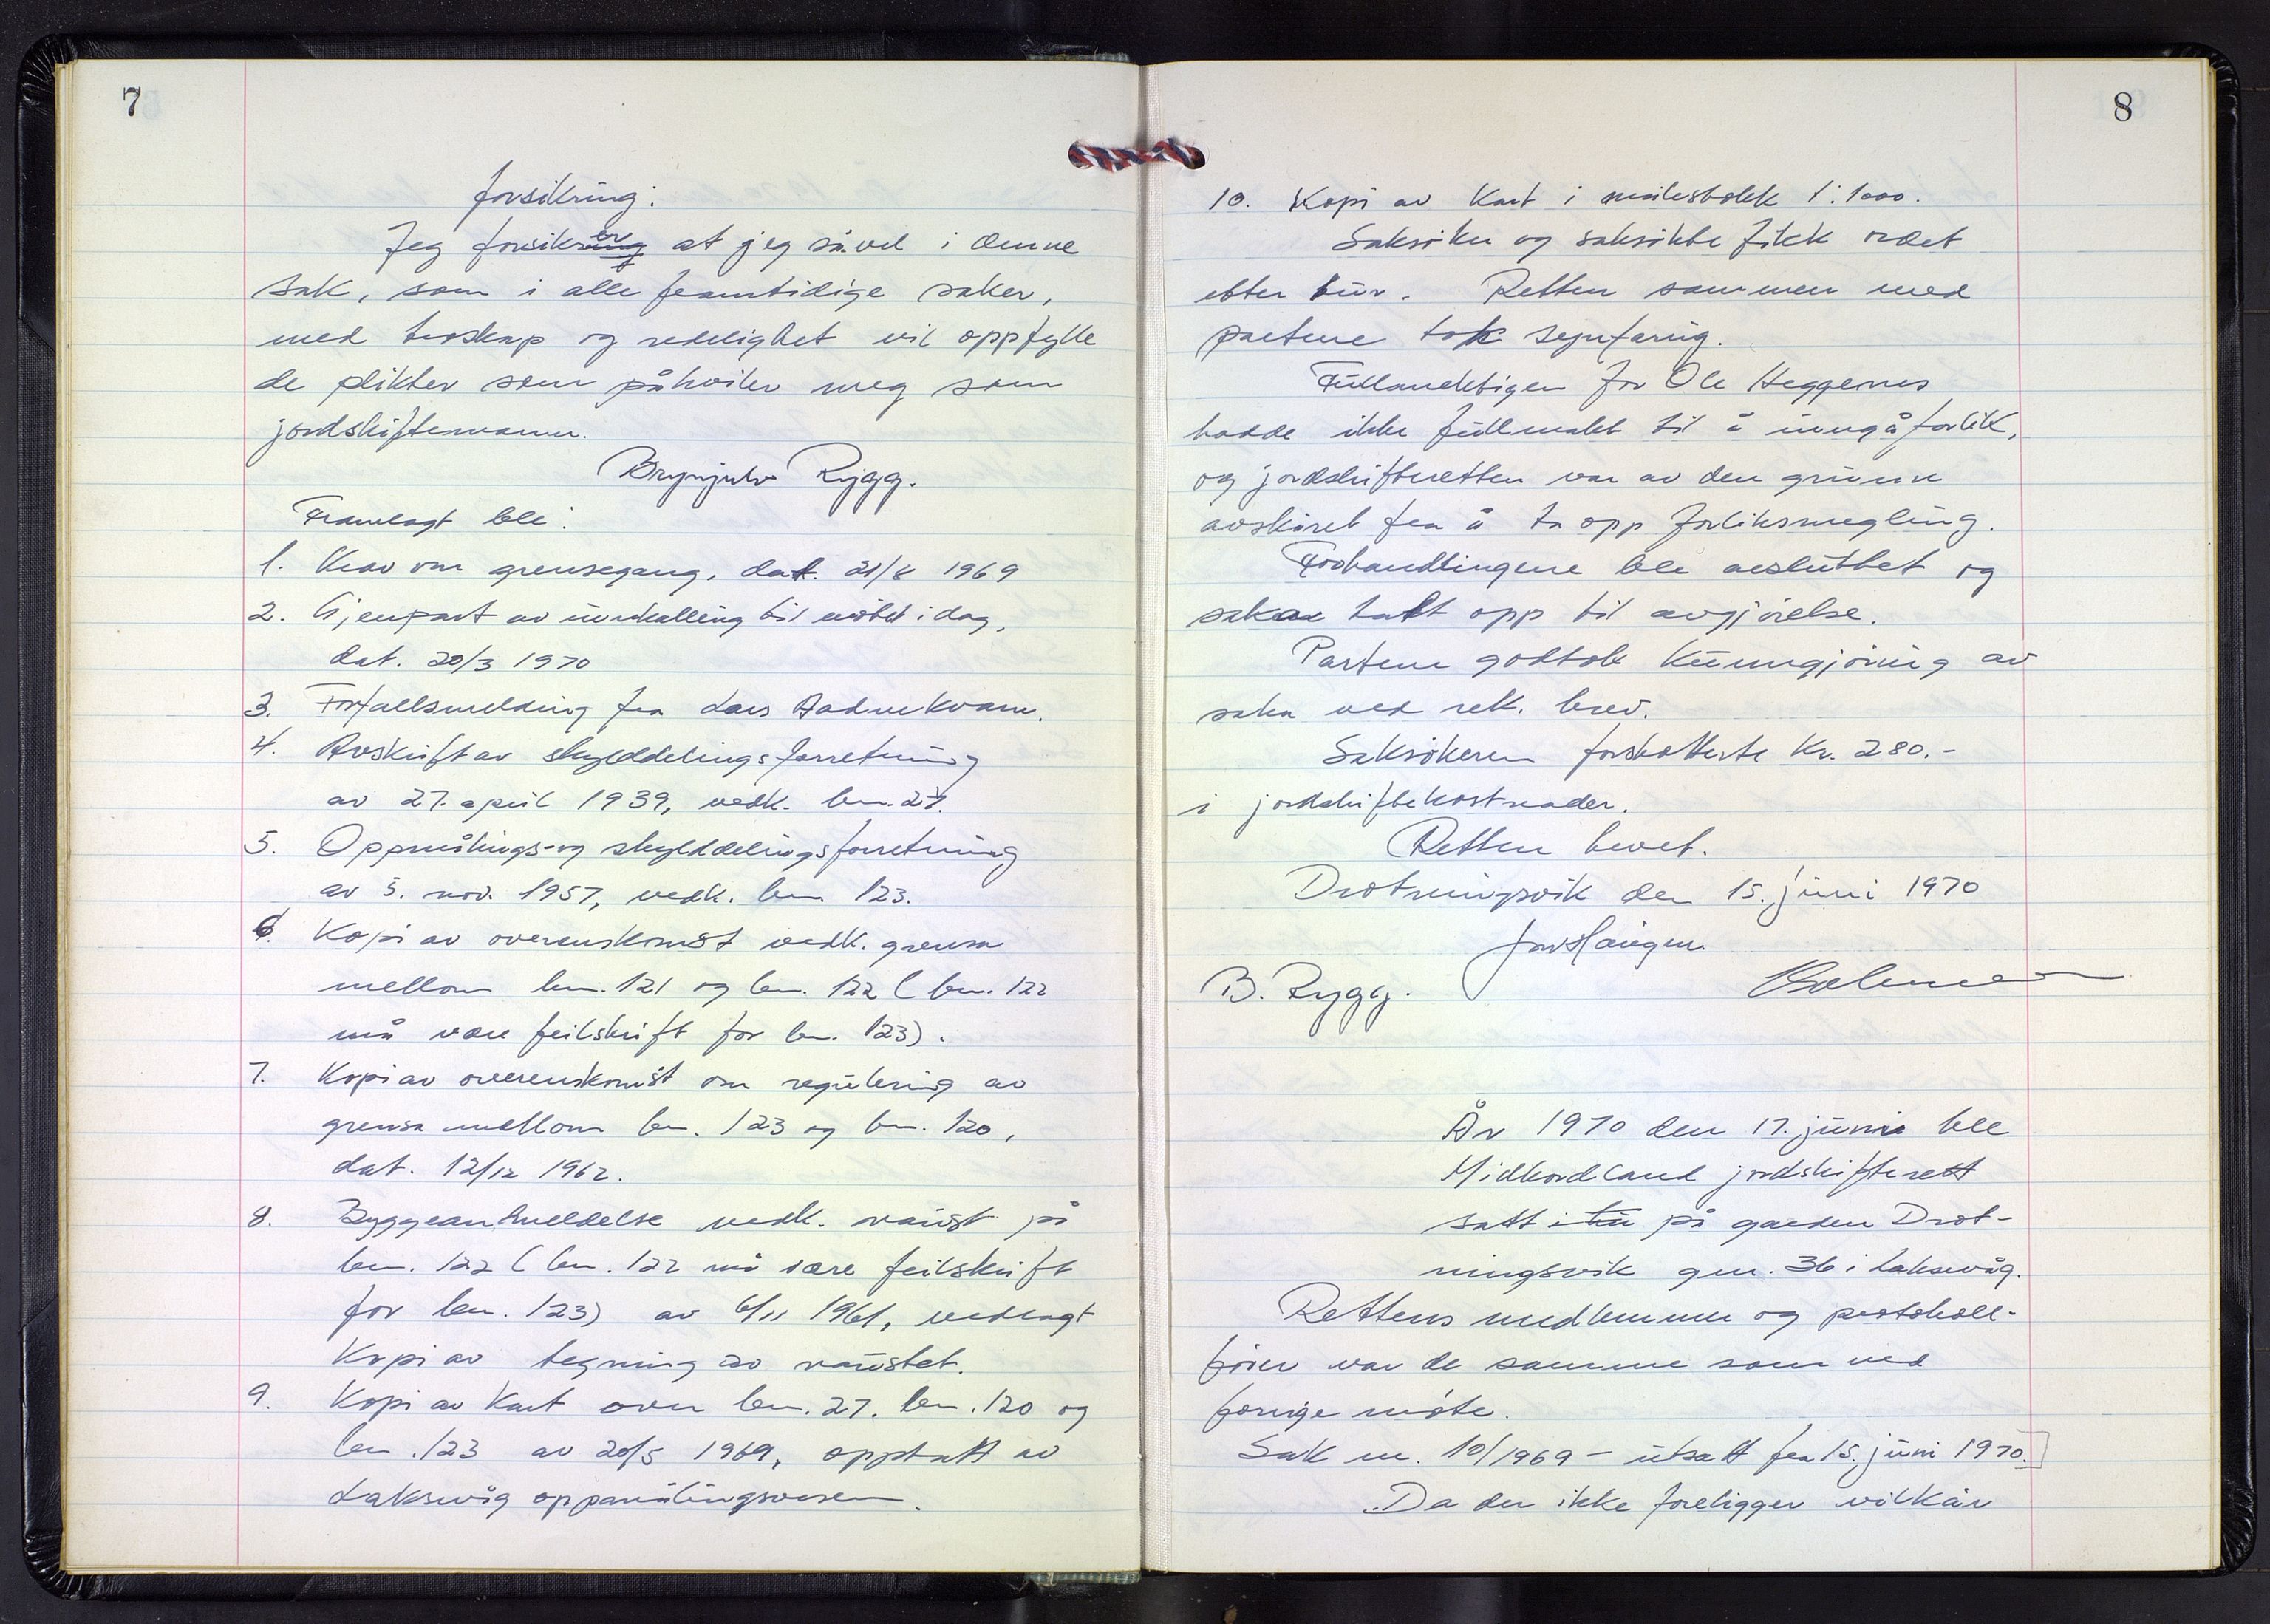 7
forsikring:
Jeg forsikrer at jeg såvel i denne
sak, som i alle framtidige saker,
med troskap og redelighet vil oppfylle
de plikter som påhviler meg som
jordskiftemann.
Brynjulv Rygg.
Framlagt ble:
1. Krav om grensegang, dat. 21/8 1969
2. Gjenpart av innkalling til møtet i dag,
dat. 20/3 1970
3. Forfallsmelding fra Lars Aadnekvam.
4. Avskrift av skylddelingsforretning
av 27. april 1939, vedk. bn. 27.
5. Oppmålings- og skylddelingsforretning
av 5. nov. 1957, vedk. bn. 123.
6. Kopi av overenskomst vedk. grensa
mellom bn. 121 og bn. 122 (bn. 122
må være feilskrift for bn. 123).
7. Kopi av overenskomst om regulering av
grensa mellom bn. 123 og bn. 120,
dat. 12/12 1962.
8. Byggeanmeldelse vedk. naust på
bn. 122 (bn. 122 må være feilskrift
for bn. 123) av 6/11 1961, vedlagt
kopi av tegning av naustet.
9. Kopi av kart over bn. 27. bn. 120 og
bn. 123 av 20/5 1969, opptatt av
Laksevåg oppmålingsvesen.
8
10. Kopi av kart i målestokk 1:1000.
Saksøker og saksøkte fikk ordet
etter tur. Retten sammen med
partene tok synfaring.
Fullmektigen for Ole Heggernes
hadde ikke fullmakt til å inngå forlik,
og jordskifteretten var av den grunn
avskåret fra å ta opp forliksmegling.
Forhandlingene ble avsluttet og
saka tatt opp til avgjørelse.
Partene godtok kunngjøring av
saka ved rek. brev.
Saksøkeren forskotterte kr. 280.-
i jordskiftekostnader.
Retten hevet.
Drotningsvik den 15. juni 1970
B. Rygg.
År 1970 den 17. juni ble
Midhordland jordskifterett
satt i tu på garden Drot-
ningsvik gnr. 36 i Laksevåg.
Rettens medlemmer og protokoll-
fører var de samme som ved
forrige møte.
Sak nr. 10/1969 - utsatt fra 15. juni 1970.
Da der ikke foreligger vilkår